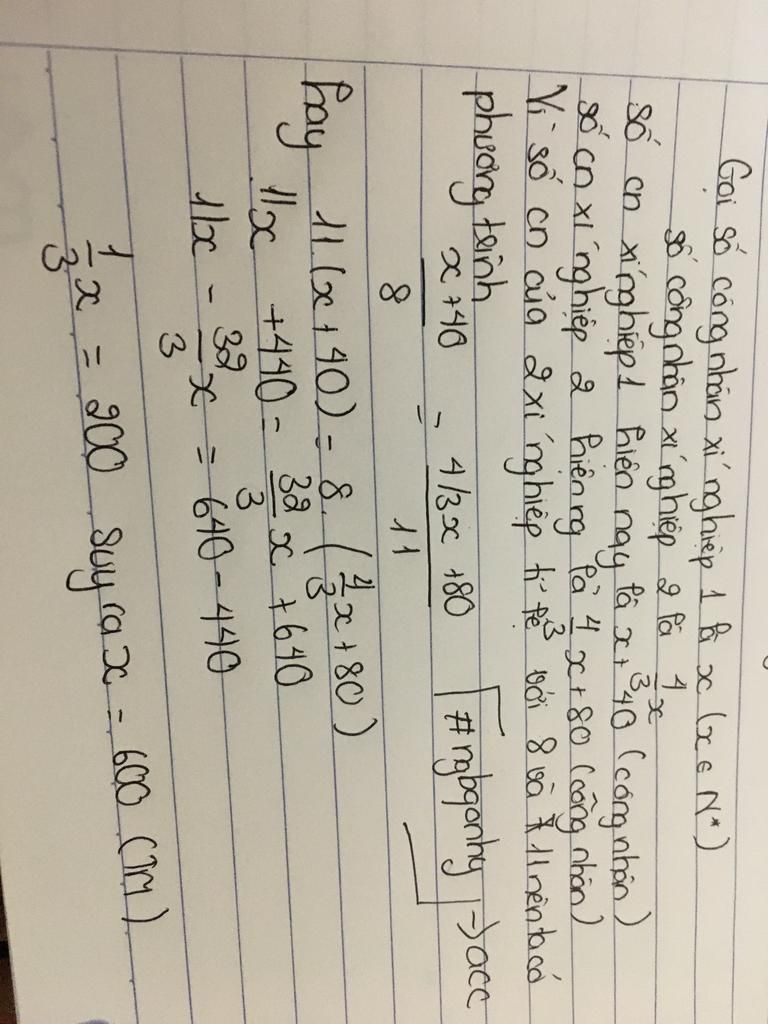 Gọi số công nhân xí nghiệp 1 là x (x ∈ N*)
số công nhân xí nghiệp 2 là 4/3 x
số cn xí nghiệp 1 hiện nay là x + 40 (công nhân)
số cn xí nghiệp 2 hiện ng là 4/3 x + 80 (công nhân)
Vì số cn của 2 xí nghiệp tỉ lệ với 8 và 11 nên ta có
phương trình
(x + 40)/8 = (4/3x + 80)/11
#ngbqanhq -> acc
hay 11(x + 40) = 8.(4/3 x + 80)
11x + 440 = 32/3 x + 640
11x - 32/3 x = 640 - 440
1/3 x = 200 suy ra x = 600 (TM)